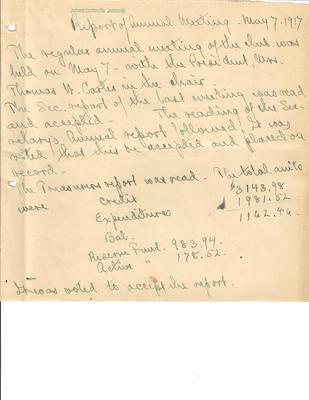 Report of Annual Meeting - May 7 - 1917
The regular annual meeting of the club was
held on May 7 - with the President, Mrs.
Thomas W. Carter in the chair.
The Sec. report of the last meeting was read
and accepted - The reading of the Sec-
retary's Annual report followed. It was
voted that this be accepted and placed on
record.
The Treasurers report was read. The total am'ts
were Credit $3143.98
Expenditures 1981.52
Bal. 1162.46.
Reserve Fund. 983.94.
Active " 178.52.
It was voted to accept the report.